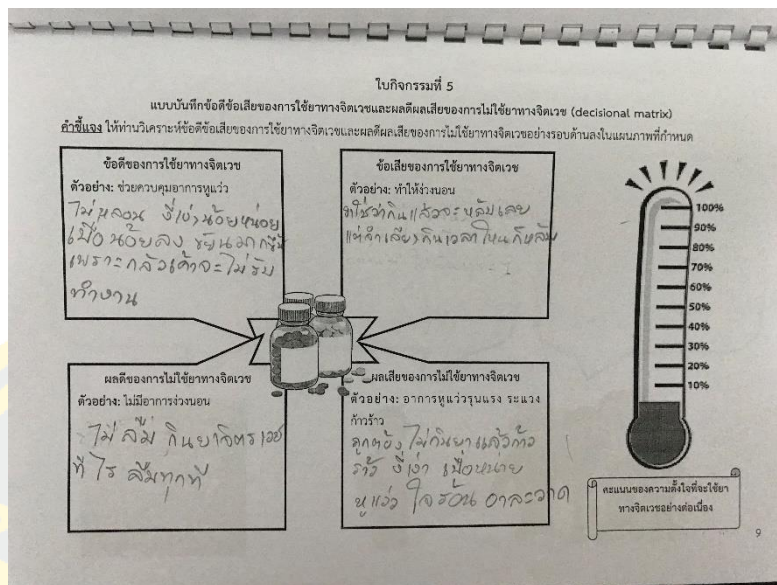 ใบกิจกรรมที่ 5
แบบบันทึกข้อดีข้อเสียของการใช้ยาทางจิตเวชและผลดีผลเสียของการไม่ใช้ยาทางจิตเวช (decisional matrix)
คำชี้แจง ให้ท่านวิเคราะห์ข้อดีข้อเสียของการใช้ยาทางจิตเวชและผลดีผลเสียของการไม่ใช้ยาทางจิตเวชอย่างรอบด้านลงในแผนภาพที่กำหนด
ข้อดีของการใช้ยาทางจิตเวช
ตัวอย่าง: ช่วยควบคุมอาการหูแว่ว
ไม่หลอน ขี้เง่าน้อยหน่อย
เบื่อน้อยลง ขยันมากขึ้น
เพราะกลัวเค้าจะไม่รับ
ทำงาน
ข้อเสียของการใช้ยาทางจิตเวช
ตัวอย่าง: ทำให้ง่วงนอน
ใช่ว่ากินแล้วจะหลับเลย
กินเวลาไหนก็หลับ
ผลดีของการไม่ใช้ยาทางจิตเวช
ตัวอย่าง: ไม่มีอาการง่วงนอน
ไม่ลืม กินยาจิตรเวช
ทีไร ลืมทุกที
ผลเสียของการไม่ใช้ยาทางจิตเวช
ตัวอย่าง: อาการหูแว่วรุนแรง ระแวง
ก้าวร้าว
ถูกต้อง ไม่กินยาแล้วก้าว
ร้าว ขี้เง่า เบื่อหน่าย
หูแว่ว ใจร้อน อาละวาด
100%
90%
80%
70%
60%
50%
40%
30%
20%
10%
คะแนนของความตั้งใจที่จะใช้ยา
ทางจิตเวชอย่างต่อเนื่อง
9